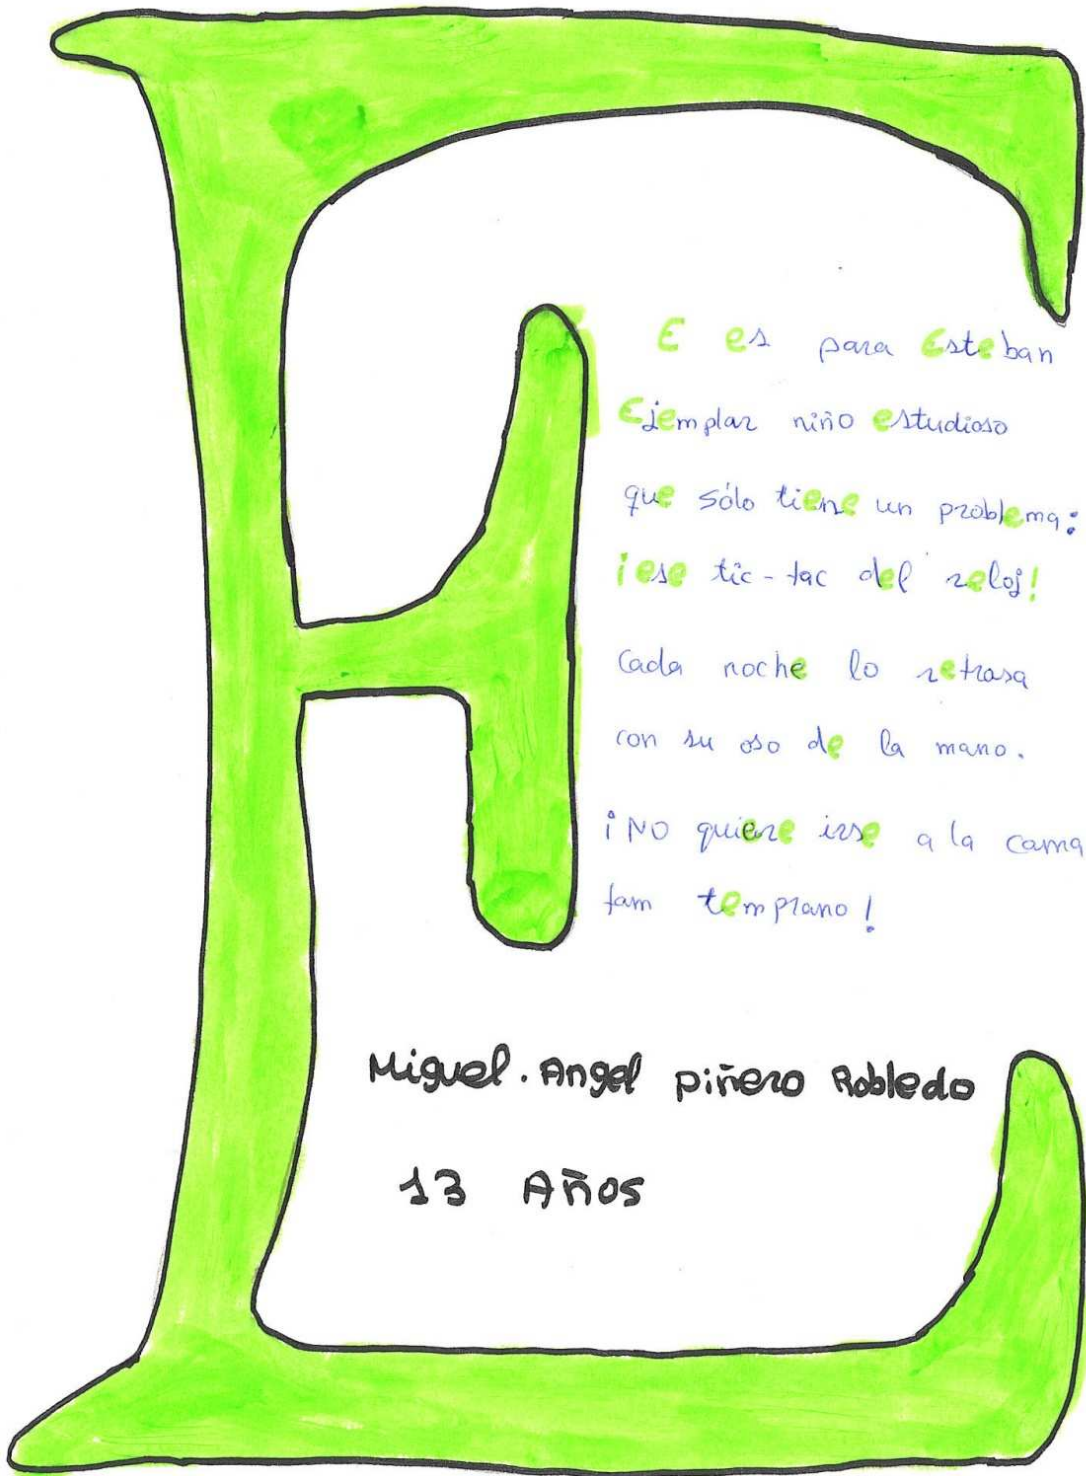 E es para Esteban
Ejemplar niño estudioso
que sólo tiene un problema:
¡ese tic-tac del reloj!
Cada noche lo retrasa
con su oso de la mano.
¡No quiere irse a la cama
tam temprano!
Miguel. Angel piñero Robledo
13 Años